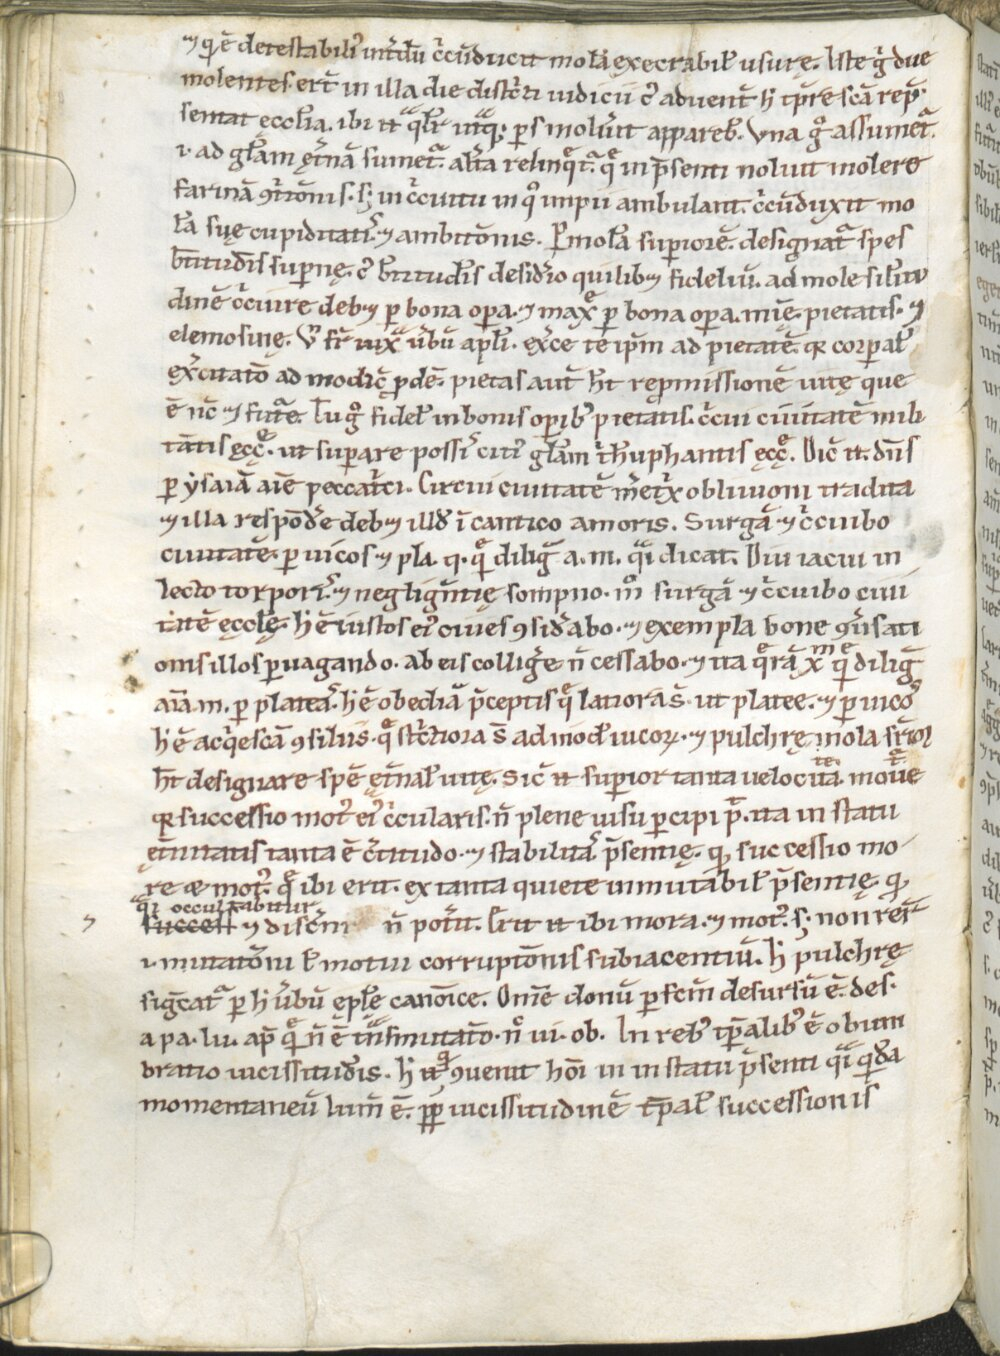 ⁊ qͥ ē detestabilʼ int̾dū c̾cūducit molā execrabilʼ usurę. Iste g̊ due
molentes erūt in illa die districti iudicii cū adven̄t h̄ tp̄re scā rep̄
sentat eccl̄ia. ibi ū qͣlit̾ utͣqꝫ ꝑs molūit appareb̾. Una g̊ assumet᷑.
.i. ad gl̄am et̾nā sumet᷑. alt̾a relinqͦt᷑. qͥ in p̄senti noluit molere
farinā ꝯtͥtōnis. sꝫ in c̾cuitu in qͦ impii ambulant. c̾cūduxit mo
lā suę cupiditatis. ⁊ ambitōnis. P̲ molā superiorē. designat᷑ spes
b̄titudīs supernę. cū b̄titudīs desid̾io quilibꝫ fideliū. ad mole similitu
dinē c̾cuire debꝫ ꝑ bona oꝑa. ⁊ maxͤ ꝑ bona oꝑa. mīe. pietatis. ⁊
elemosinę. Uñ fr̄ iuxͣ ūbū apl̄i. exͣce te ip̄m ad pietatē. qꝛ corꝑalʼ
ex̾citatō ad modicū ꝓdē. pietas aut̄ h̄t reꝓmissionē uitę que
ē nc̄ ⁊ futͥe. Tu g̊ fidelʼ in bonis oꝑibꝰ pietatis. c̾cui ciuitatē mili
tātis ęcc̄ͤ. ut suꝑare possis citiꝰ gl̄am tͥhuphantis ęcc̄ͤ. Dic̄ ū. dn̄s
ꝑ ysaiā aīe peccatͥci. Circui ciuitatē m̾etͥx obliuioni tradita
⁊ illa respōd̾e debꝫ illd̾ ī cantico amoris. Surgā ⁊ c̾cuibo
ciuitatē. ꝑ uicos. ⁊ pla. q. qͤ dilig̾ a. m. qͣi dicat. Diu iacui in
lecto torporis. ⁊ neglig̾ntię sompno. mͦ surgā ⁊ c̾cuibo ciui
tatē ęccl̄ę. h̄ ē iustos eiꝰ ciues ꝯsid̾abo. ⁊ exempla bone ꝯūsati
onis illos ꝑuagando. ab eis collig̾e n̄ cessabo. ⁊ ita qͤrā xᵐ qͤ dilig̾
aīa. m. ꝑ plateas. h̄ ē obediā p̄ceptis qͤ latiora s̄. ut platee. ⁊ ꝑ uicos
h̄ ē acqͥescā ꝯsiliis. qͤ strictiora s̄ ad modū uicoꝝ. ⁊ pulchrę mola supior
h̄t designare spē et̾nalʼ uitę. Sic̄ ū superior tanta uelocitate mouet̾
qꝛ successio motꝰ eiꝰ c̾cularis. n̄ plene uisu ꝑcipi pͭ. ita in statu
ęt̾nitatis tanta ē c̾titudo. ⁊ stabilitas p̄sentię. qꝫ successio mo
re & motꝰ. qͤ ibi erit. ex tanta quiete inmutabilʼ p̄sentię. qꝫ
qͣi occultabitur
success̄ ⁊ discīni n̄ pot̾it. Erit ū ibi mora. ⁊ motꝰ. sꝫ non reꝝ
.i. mutatōni ł motui corruptōnis subiacentiū. h̄ pulchrę
sig̾cat᷑ ꝑ h̄ ūbū epl̄e canōice. Om̄e donū ꝑfcm̄ desursū ē. des.
a pa. lu. ap̄ qͤ n̄ ē tn̄smutatō. nͦ ui. ob. In rebꝰ tp̄alibꝰ ē obum
bratio uicissitudīs. h̄ ū ꝯuenit hōi in in statu p̄senti qͣi qͦdā
momentaneū lum̄ ē. ꝓp̄ uicissitudinē tp̄alʼ successionis